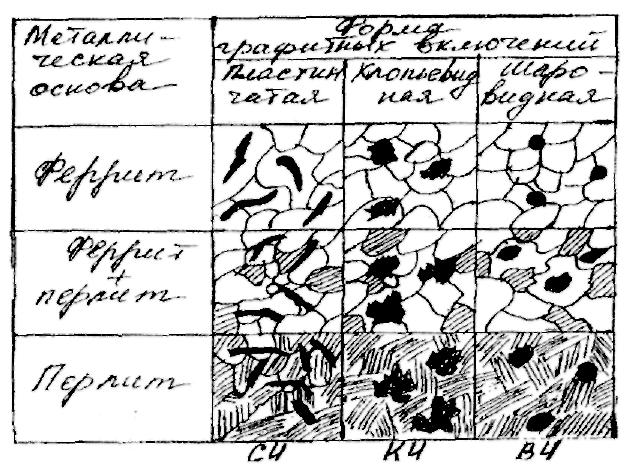 Металли-
ческая
основа
Форма
графитных включений
Пластин
чатая
Хлопьевид
ная
Шаро-
видная
Феррит
Феррит
+
перлит
Перлит
СЧ
КЧ
ВЧ